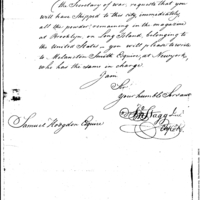 (the Secretary of war, requests that you
will have shipped to this city immediately
all the powder remaining in the magazine
at Brooklyn, on Long Island, belonging to
the United States — you will please to write
to Melancton Smith Esquire, at Newyork,
who has the same in charge.
I am
Sir
Your humble Servant
Jn Stagg Junr
Samuel Hodgdon Esquire